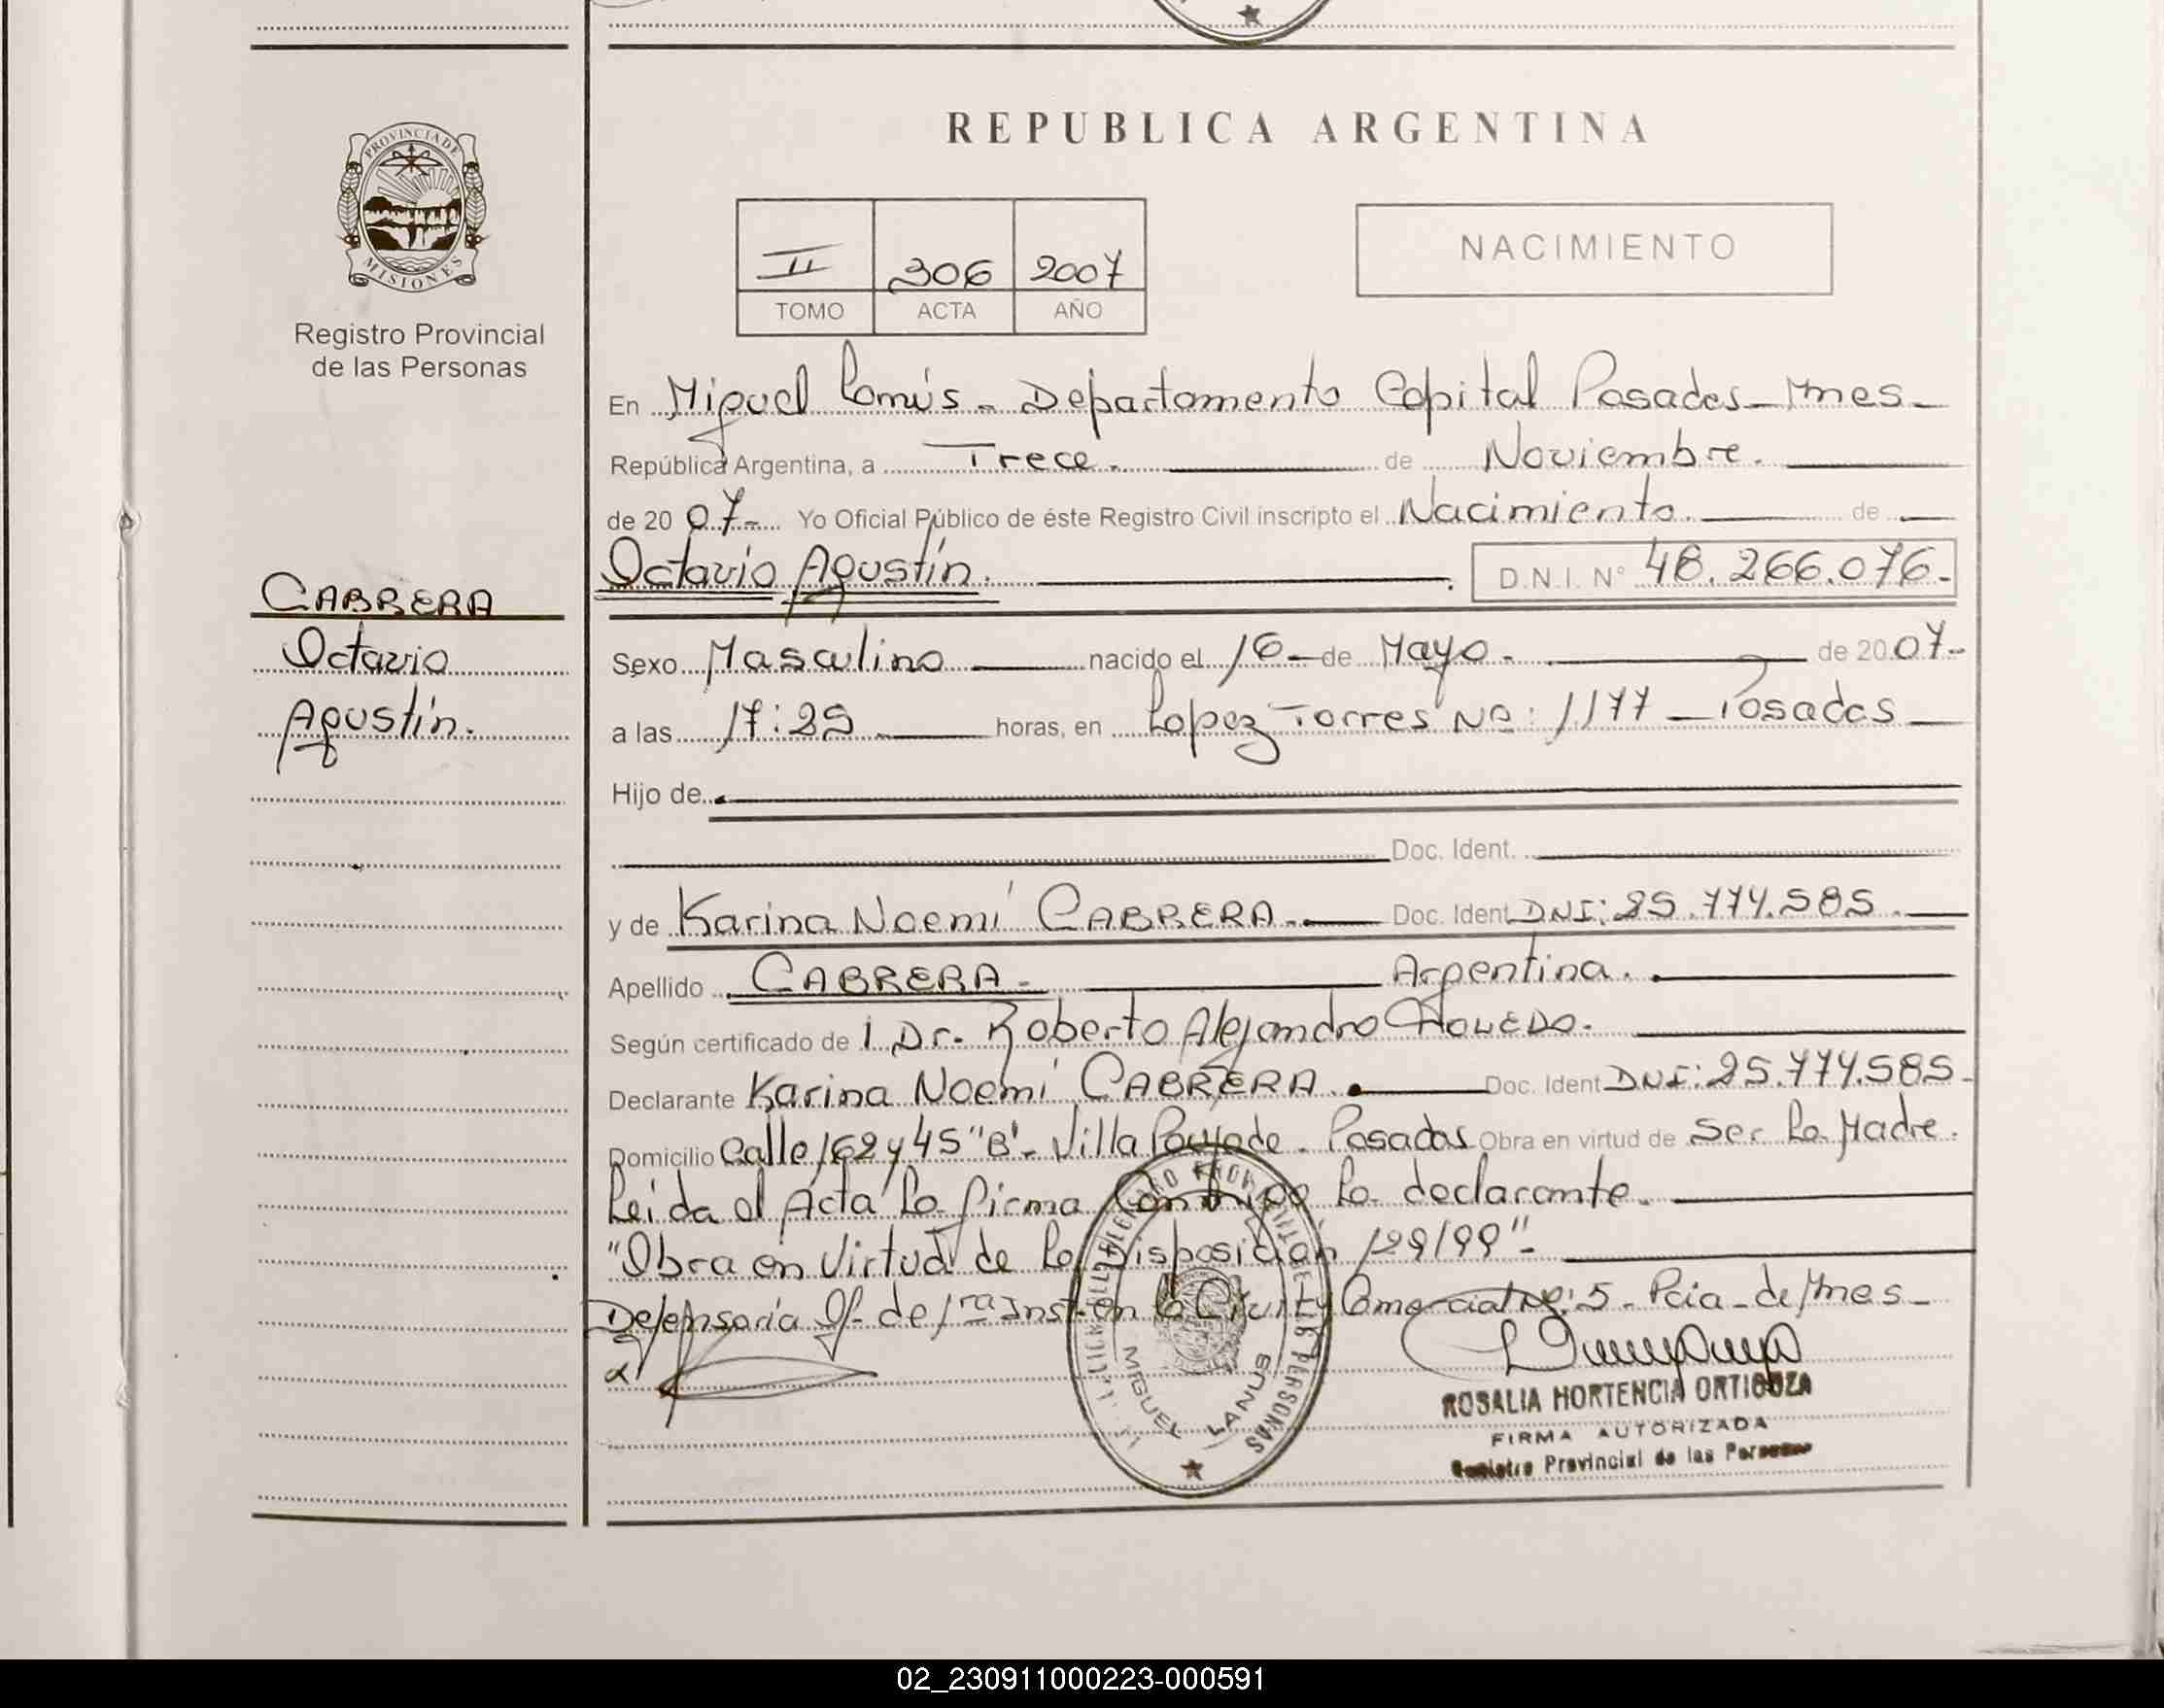 PROVINCIA DE
MISIONES
Registro Provincial
de las Personas
CABRERA
Octavio
Agustín.
REPUBLICA ARGENTINA
II 306 2007
TOMO ACTA AÑO
NACIMIENTO
En Miguel Lanús - Departamento Capital Posadas - Mnes -
República Argentina, a Trece. de Noviembre.
de 20 07- Yo Oficial Público de éste Registro Civil inscripto el Nacimiento. de
Octavio Agustín. D.N.I. N° 48.266.076.-
Sexo Masculino nacido el 16 - de Mayo - de 20 07-
a las 17:25 horas, en Lopez Torres Nº: 1177 - Posadas
Hijo de
Doc. Ident.
y de Karina Noemí CABRERA.- Doc. Ident. DNI: 25.774.585.
Apellido CABRERA - Argentina.
Según certificado de l Dr. Roberto Alejandro
Declarante Karina Noemí CABRERA. Doc. Ident DNI: 25.774.585-
Domicilio Calle 162 y 45 "B"- Villa Poujade. Posadas Obra en virtud de Ser la Madre.
Leída el Acta la firma Conmigo la declarante.
"Obra en Virtud de la Disposición 129/99"-
Defensoría Of. de 1ra Inst. en lo Civil y Comercial Nº: 5 - Pcia - de Mnes -
MIGUEL LANUS
ROSALIA HORTENCIA ORTIGOZA
FIRMA AUTORIZADA
Registro Provincial de las Personas
02_230911000223-000591